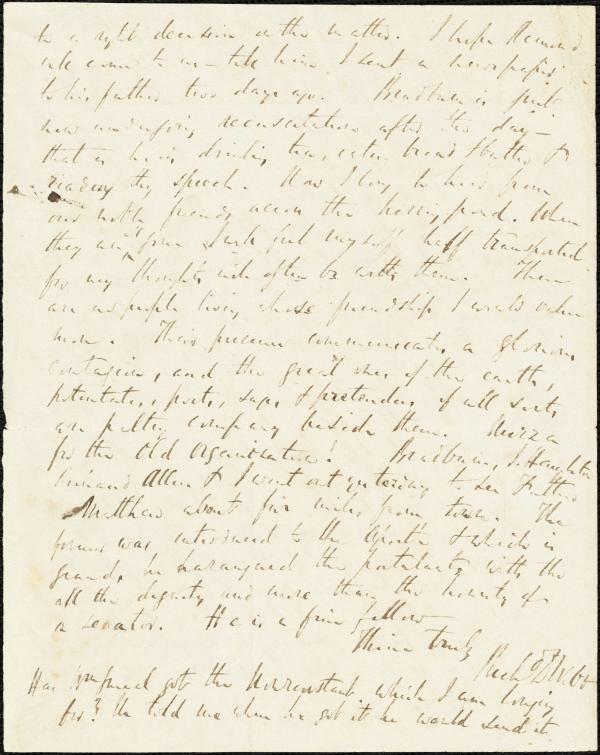 to a right decision on the matter. I hope Remond
will come to us — tell him I sent a newspaper
to his father two days ago. Bradburn is just
now undergoing resuscitation after the day —
that is he is drinking tea, eating bread & butter &
reading thy speech. How I long to hear from
our noble friends across the herring pond. When
they are gone I shall feel myself half transported
for my thoughts will often be with them. There
are no people living whose friendship I would value
more. Their presence communicates a glorious
contagion, and the great ones of the earth,
potentates, poets, sages & pretenders of all sorts
are paltry company beside them. Huzza
for the Old Organisation! Bradburn, J. Haughton
Richard Allen & I went out yesterday to see Father
Mathew about five miles from town. The
former was introduced to the Apostle & which is
grand, he harangued the postulants with the
all the dignity and more than the honesty of
a senator. He is a fine fellow —
Thine truly
Richd D Webb
Has got the which I am longing
for? He told me when he got it he would send it